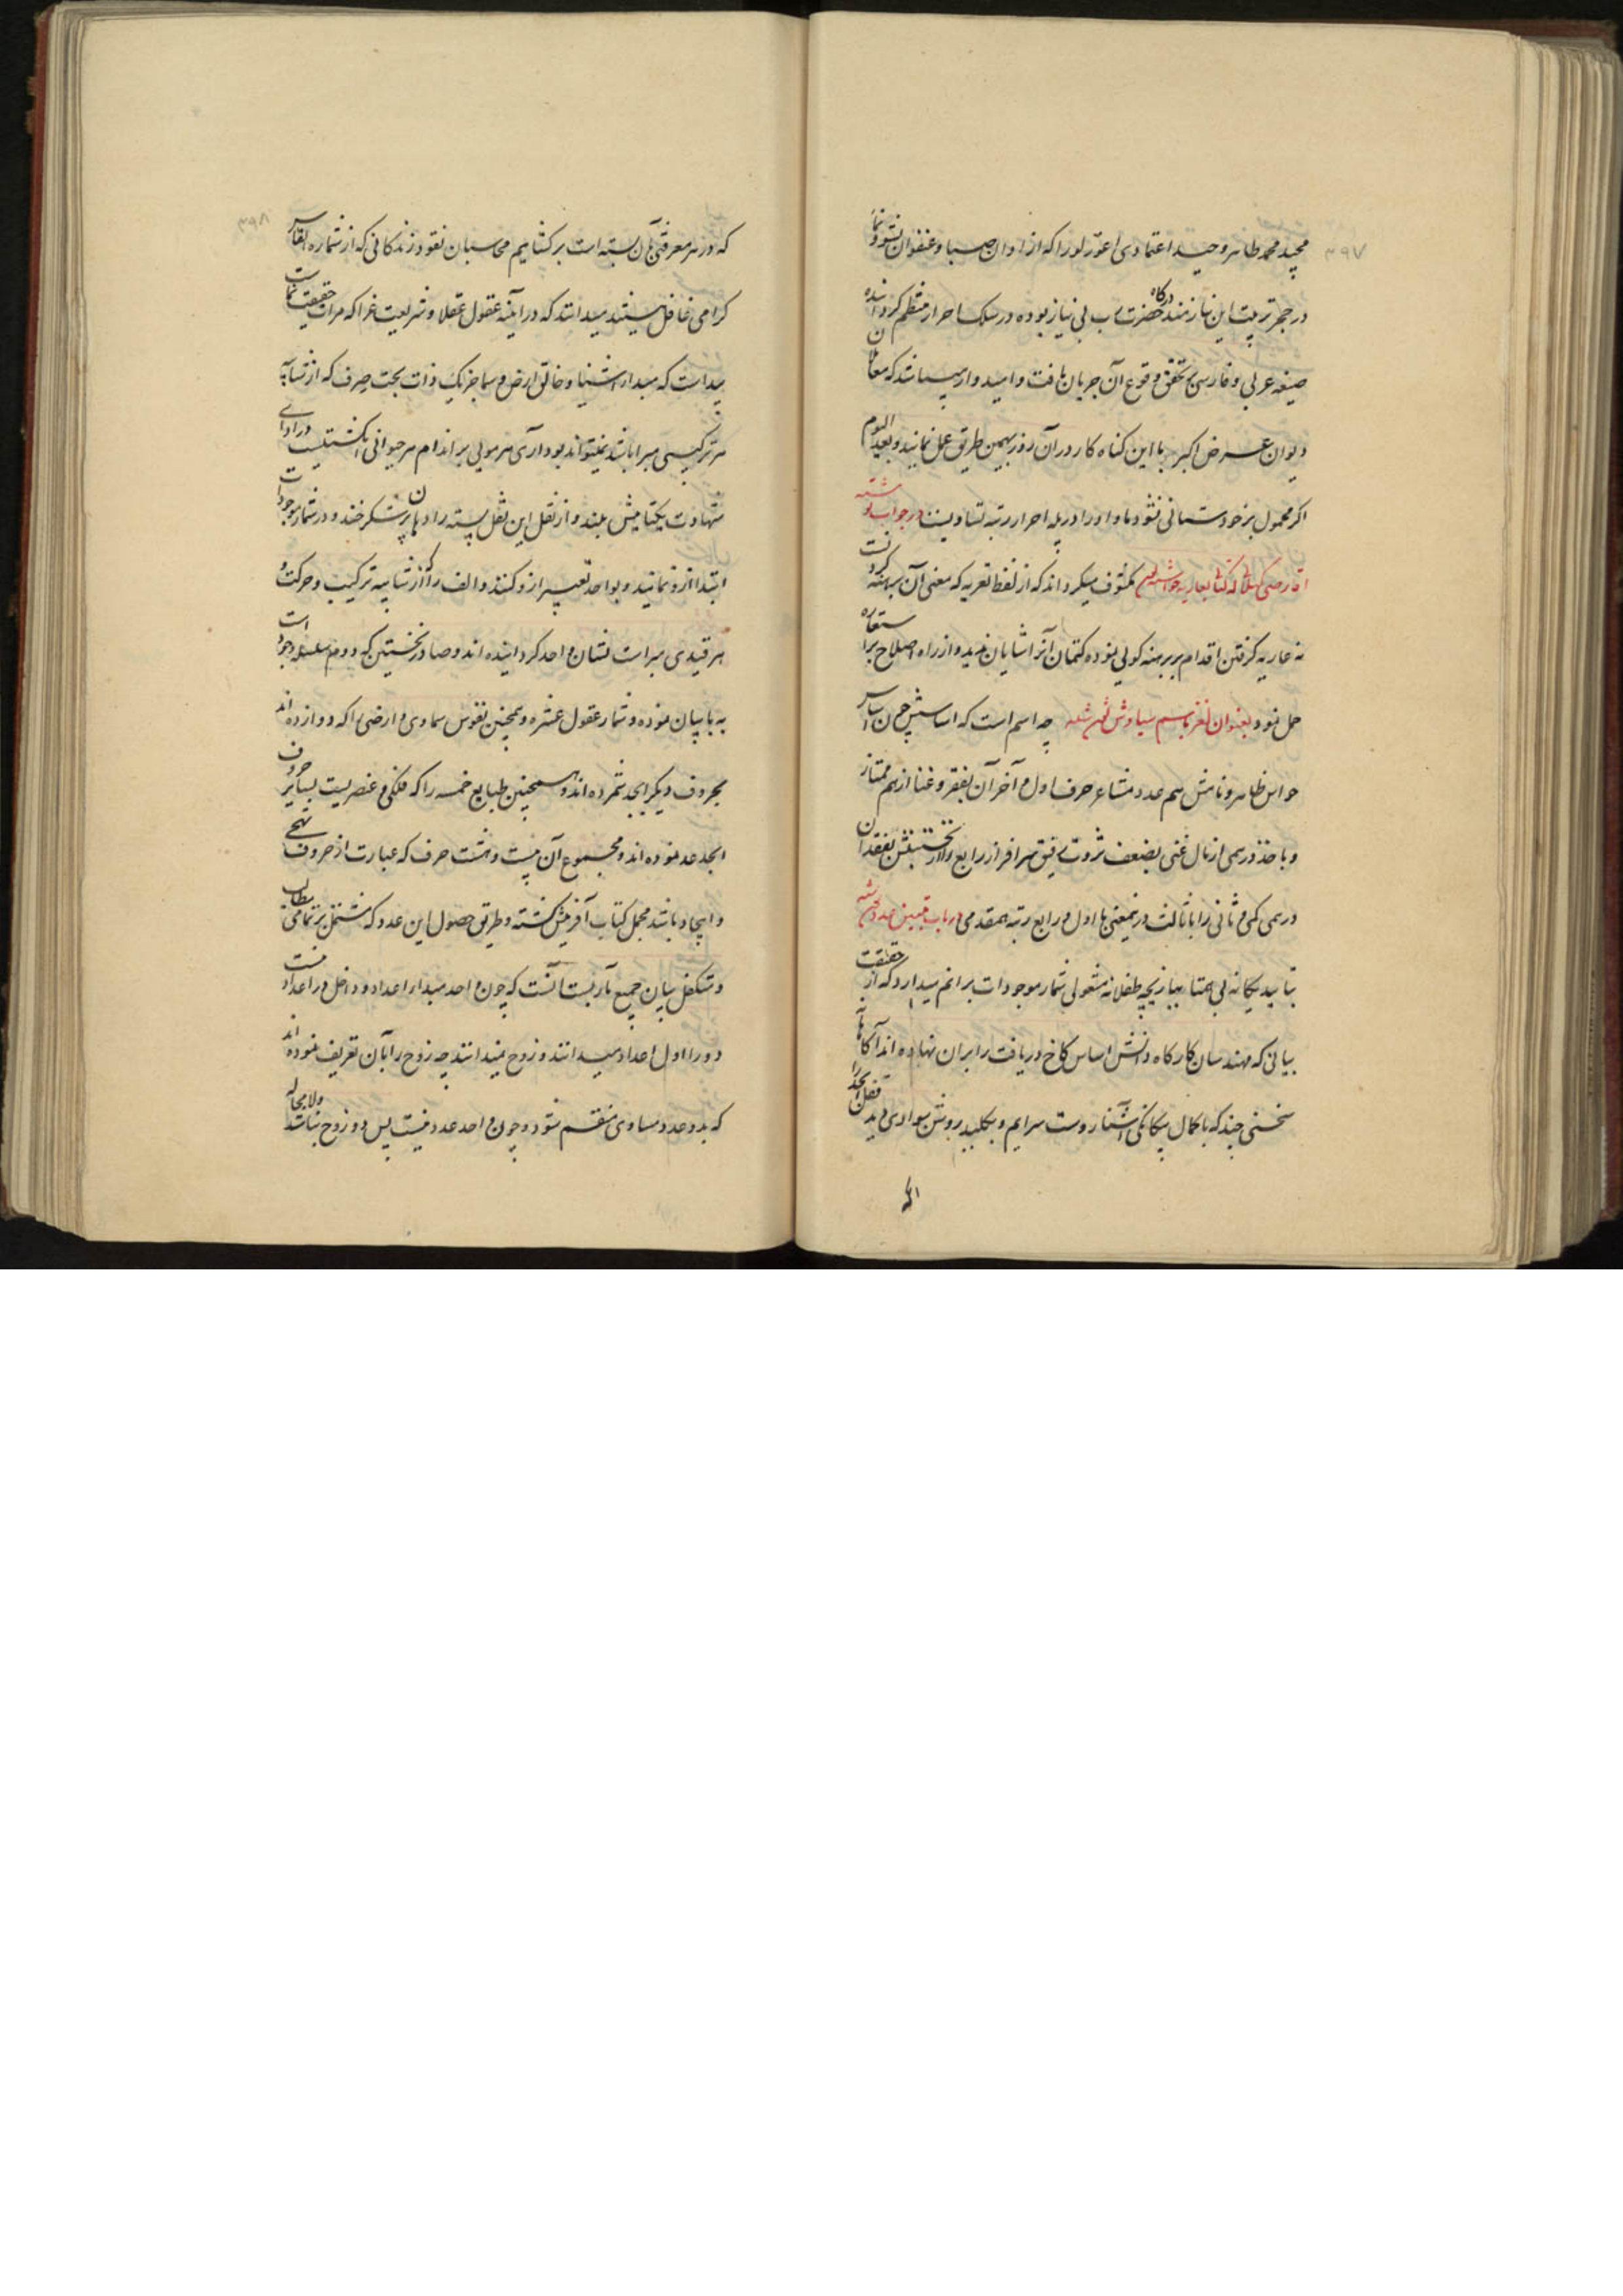 ۳۹۷
مجید محمد طاهر وحید اعتمادی اغور لو را که از اوان صبا و عنفوان نشو و نما
در حجر تربیت این نیازمند درگاه حضرت رب بی نیاز بوده در سلک احرار منتظم گردانیده
صیغه عربی و فارسی بر تحقق وقوع آن جریان یافت و امیدوار میباشد که معا
دیوان عرض اکبر با این گناه کار در آن روز بهمین طریق عمل نمایند و بعد الیوم
اگر محمول بر خودستانی نشود ما و او را در پله احرار رتبه تساویست در جواب نوشته
مکشوف میگرداند که از لفظ تعریه که معنی آن برهنه
به عاریه گرفتن اقدام بر برهنه گوئی نموده کتمان آنرا شایان ندید و از راه اصلاح بر استعاره
حمل نمود بعنوان لغز باسم سیاوش نوشته چه اسم است که اساسش چون اساس
حواس ظاهر و نامش هم عدد مشاعر حرف اول و آخر آن بفقر و غنا از هم ممتاز
و باخذ درمی از مال غنی بضعف ثروت رفیق سر افراز رابع را از نخستینش بفقدان
درمی کمی و ثانی را با ثالث در نیمعنی با اول و رابع رتبه همقدمی در باب تبیین عدد نوشته
بتایید یگانه بی همتا ببازیچه طفلانه مشغولی شمار موجودات بر آنم میدارد که از حقیقت
بیانی که مهندسان کارگاه دانش اساس کاخ دریافت را بر آن نهاده اند آگاهانه
سخنی چند که با کمال بیگانگی آشنا روست سرایم و بکلید روشن سوادی دید قفل ابجد را
۳۹۸
که در هر معرفتی بآن بسته است بر گشایم محاسبان نقود زندگانی که از شماره انفاس
گرامی غافل نیستند میدانند که در آینه عقول عقلا و شریعت غرا که مرات حقیقت نماست
پیداست که مبدا اشیا و خالق ارض و سما جز یک ذات بحت صرف که از شایبه
هر ترکیبی مبرا باشد نمیتواند بود آری هر مویی بر اندام هر حیوانی انگشتیست در ادای
شهادت یکتائیش بلند و از نقل این نقل پسته را دهان پر شکر خند و در شمار موجودات
ابتدا از و نمایند و بواحد تعبیر از و کنند و الف را که از شایبه ترکیب و حرکت و
هر قیدی مبراست نشان واحد گردانیده اند و صادر نخستین که دوم سلسله وجود است
به با بیان نموده و شمار عقول عشره و همچنین نفوس سماوی و ارضی را که دوازده اند
بحروف دیگر ابجد شمرده اند و همچنین طبایع خمسه را که فلکی و عنصریست بسایر حروف
ابجد عد نموده اند و مجموع آن بیست و هشت حرف که عبارت از حروف تهجی
و ایجاد باشد مجمل کتاب آفرینش گشته و طریق حصول این عدد که مشتمل بر تمامی مطالب
و متکفل بیان جمیع مآربست آنست که چون واحد مبدا اعداد و داخل در اعداد نیست
دو را اول اعداد میدانند و زوج میدانند چه زوج را بآن تعریف نموده اند
که بدو عدد مساوی منقسم شود و چون واحد عدد نیست پس دو زوج نباشد و لا محاله